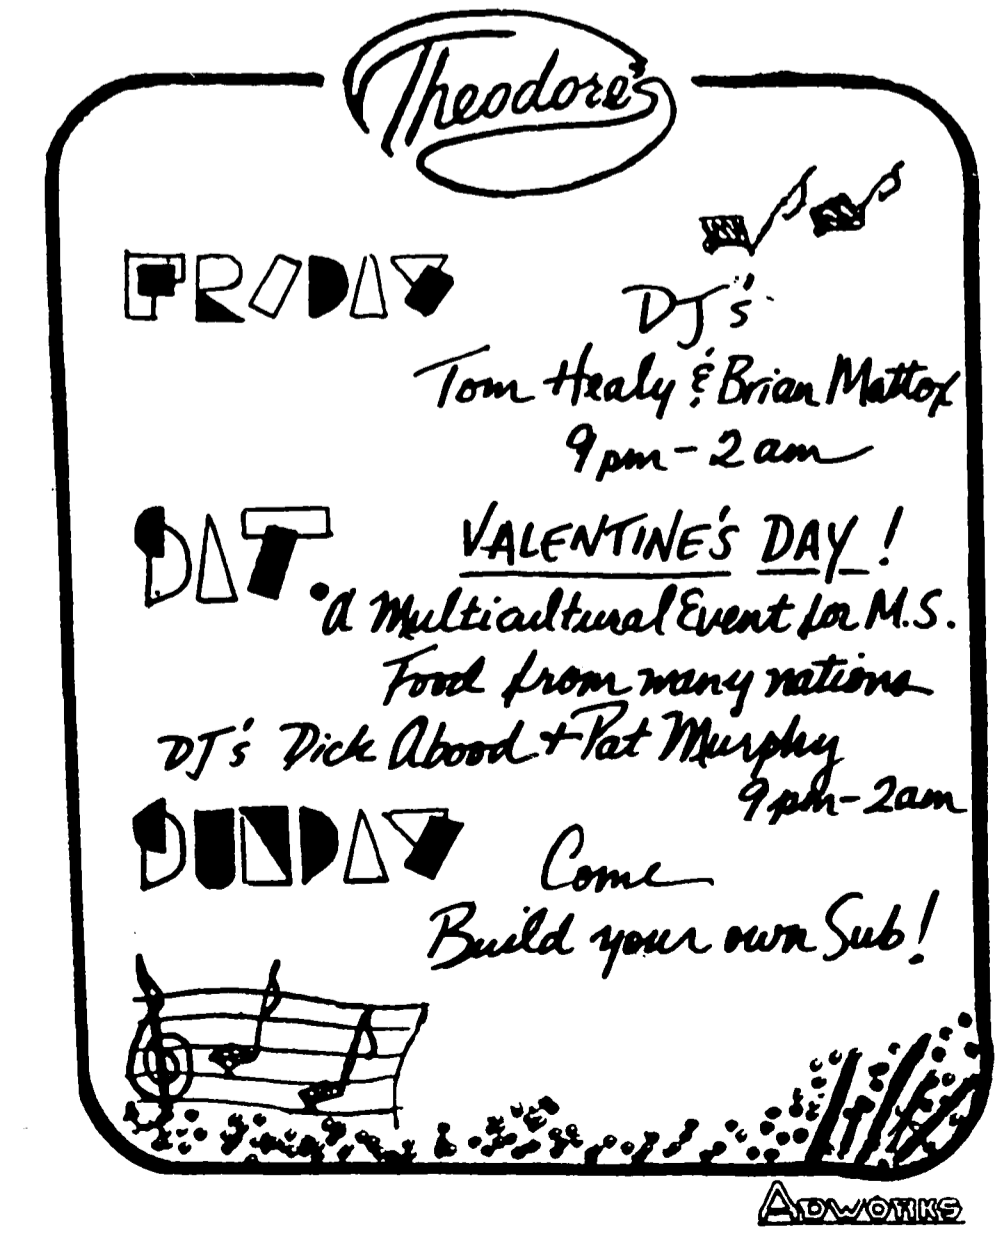 Theodore's
FRIDAY
DJ's
Tom Healy & Brian Mattox
9pm - 2am
SAT.
VALENTINE'S DAY!
A Multicultural Event for M.S.
Food from many nations
DJ's Dick Abood + Pat Murphy
9pm - 2am
SUNDAY
Come
Build your own Sub!
ADWORKS